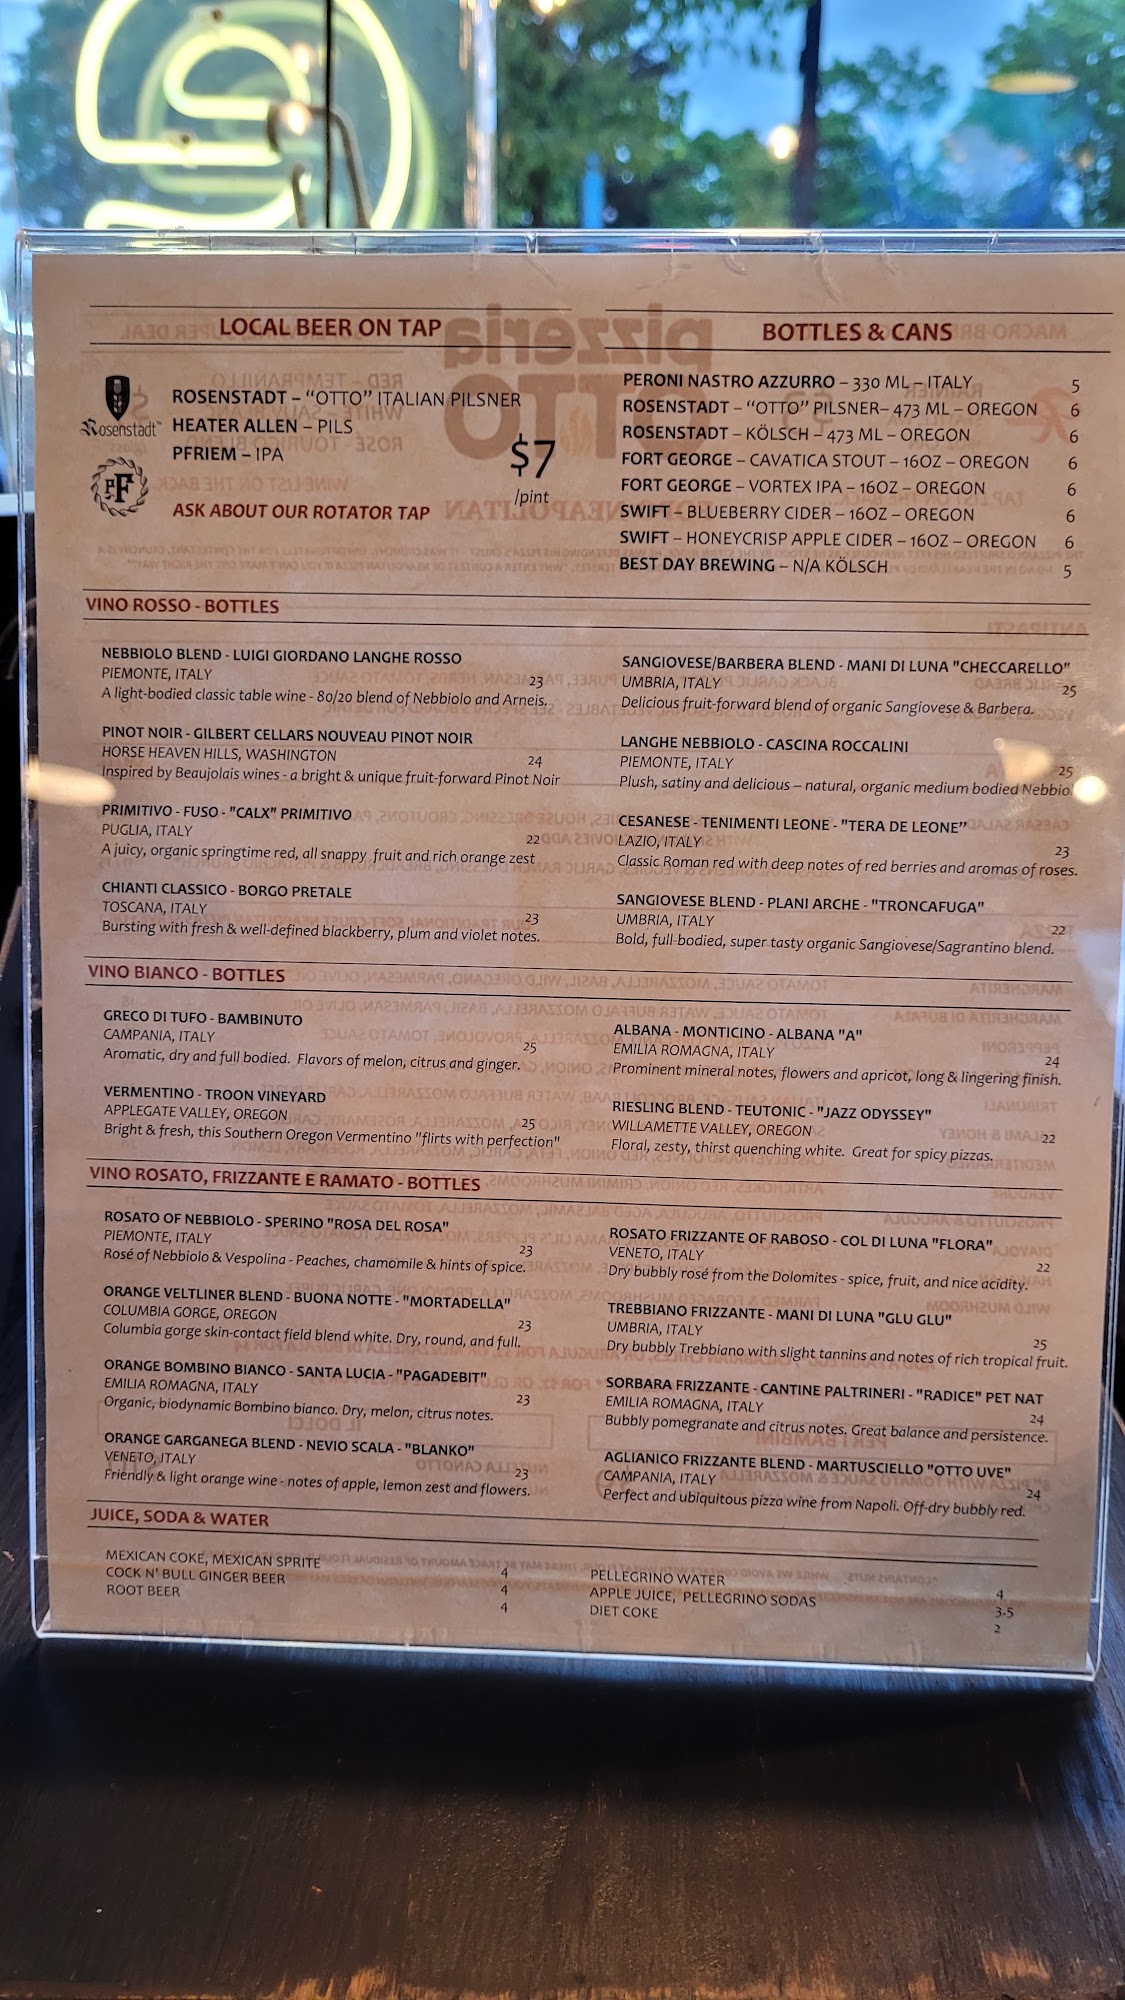 LOCAL BEER ON TAP
Rosenstadt
ROSENSTADT – "OTTO" ITALIAN PILSNER
HEATER ALLEN – PILS
PFRIEM – IPA
PF
$7
/pint
ASK ABOUT OUR ROTATOR TAP
BOTTLES & CANS
PERONI NASTRO AZZURRO – 330 ML – ITALY 5
ROSENSTADT – "OTTO" PILSNER– 473 ML – OREGON 6
ROSENSTADT – KÖLSCH – 473 ML – OREGON 6
FORT GEORGE – CAVATICA STOUT – 16OZ – OREGON 6
FORT GEORGE – VORTEX IPA – 16OZ – OREGON 6
SWIFT – BLUEBERRY CIDER – 16OZ – OREGON 6
SWIFT – HONEYCRISP APPLE CIDER – 16OZ – OREGON 6
BEST DAY BREWING – N/A KÖLSCH 5
VINO ROSSO - BOTTLES
NEBBIOLO BLEND - LUIGI GIORDANO LANGHE ROSSO
PIEMONTE, ITALY 23
A light-bodied classic table wine - 80/20 blend of Nebbiolo and Arneis.
PINOT NOIR - GILBERT CELLARS NOUVEAU PINOT NOIR
HORSE HEAVEN HILLS, WASHINGTON 24
Inspired by Beaujolais wines - a bright & unique fruit-forward Pinot Noir
PRIMITIVO - FUSO - "CALX" PRIMITIVO
PUGLIA, ITALY 22
A juicy, organic springtime red, all snappy fruit and rich orange zest
CHIANTI CLASSICO - BORGO PRETALE
TOSCANA, ITALY 23
Bursting with fresh & well-defined blackberry, plum and violet notes.
SANGIOVESE/BARBERA BLEND - MANI DI LUNA "CHECCARELLO"
UMBRIA, ITALY 25
Delicious fruit-forward blend of organic Sangiovese & Barbera.
LANGHE NEBBIOLO - CASCINA ROCCALINI
PIEMONTE, ITALY 25
Plush, satiny and delicious – natural, organic medium bodied Nebbio
CESANESE - TENIMENTI LEONE - "TERA DE LEONE"
LAZIO, ITALY 23
Classic Roman red with deep notes of red berries and aromas of roses.
SANGIOVESE BLEND - PLANI ARCHE - "TRONCAFUGA"
UMBRIA, ITALY 22
Bold, full-bodied, super tasty organic Sangiovese/Sagrantino blend.
VINO BIANCO - BOTTLES
GRECO DI TUFO - BAMBINUTO
CAMPANIA, ITALY 25
Aromatic, dry and full bodied. Flavors of melon, citrus and ginger.
VERMENTINO - TROON VINEYARD
APPLEGATE VALLEY, OREGON 25
Bright & fresh, this Southern Oregon Vermentino "flirts with perfection"
ALBANA - MONTICINO - ALBANA "A"
EMILIA ROMAGNA, ITALY 24
Prominent mineral notes, flowers and apricot, long & lingering finish.
RIESLING BLEND - TEUTONIC - "JAZZ ODYSSEY"
WILLAMETTE VALLEY, OREGON 22
Floral, zesty, thirst quenching white. Great for spicy pizzas.
VINO ROSATO, FRIZZANTE E RAMATO - BOTTLES
ROSATO OF NEBBIOLO - SPERINO "ROSA DEL ROSA"
PIEMONTE, ITALY 23
Rosé of Nebbiolo & Vespolina - Peaches, chamomile & hints of spice.
ORANGE VELTLINER BLEND - BUONA NOTTE - "MORTADELLA"
COLUMBIA GORGE, OREGON 23
Columbia gorge skin-contact field blend white. Dry, round, and full.
ORANGE BOMBINO BIANCO - SANTA LUCIA - "PAGADEBIT"
EMILIA ROMAGNA, ITALY 23
Organic, biodynamic Bombino bianco. Dry, melon, citrus notes.
ORANGE GARGANEGA BLEND - NEVIO SCALA - "BLANKO"
VENETO, ITALY 23
Friendly & light orange wine - notes of apple, lemon zest and flowers.
ROSATO FRIZZANTE OF RABOSO - COL DI LUNA "FLORA"
VENETO, ITALY 22
Dry bubbly rosé from the Dolomites - spice, fruit, and nice acidity.
TREBBIANO FRIZZANTE - MANI DI LUNA "GLU GLU"
UMBRIA, ITALY 25
Dry bubbly Trebbiano with slight tannins and notes of rich tropical fruit.
SORBARA FRIZZANTE - CANTINE PALTRINERI - "RADICE" PET NAT
EMILIA ROMAGNA, ITALY 24
Bubbly pomegranate and citrus notes. Great balance and persistence.
AGLIANICO FRIZZANTE BLEND - MARTUSCIELLO "OTTO UVE"
CAMPANIA, ITALY 24
Perfect and ubiquitous pizza wine from Napoli. Off-dry bubbly red.
JUICE, SODA & WATER
MEXICAN COKE, MEXICAN SPRITE 4
COCK N' BULL GINGER BEER 4
ROOT BEER 4
PELLEGRINO WATER 4
APPLE JUICE, PELLEGRINO SODAS 3.5
DIET COKE 2